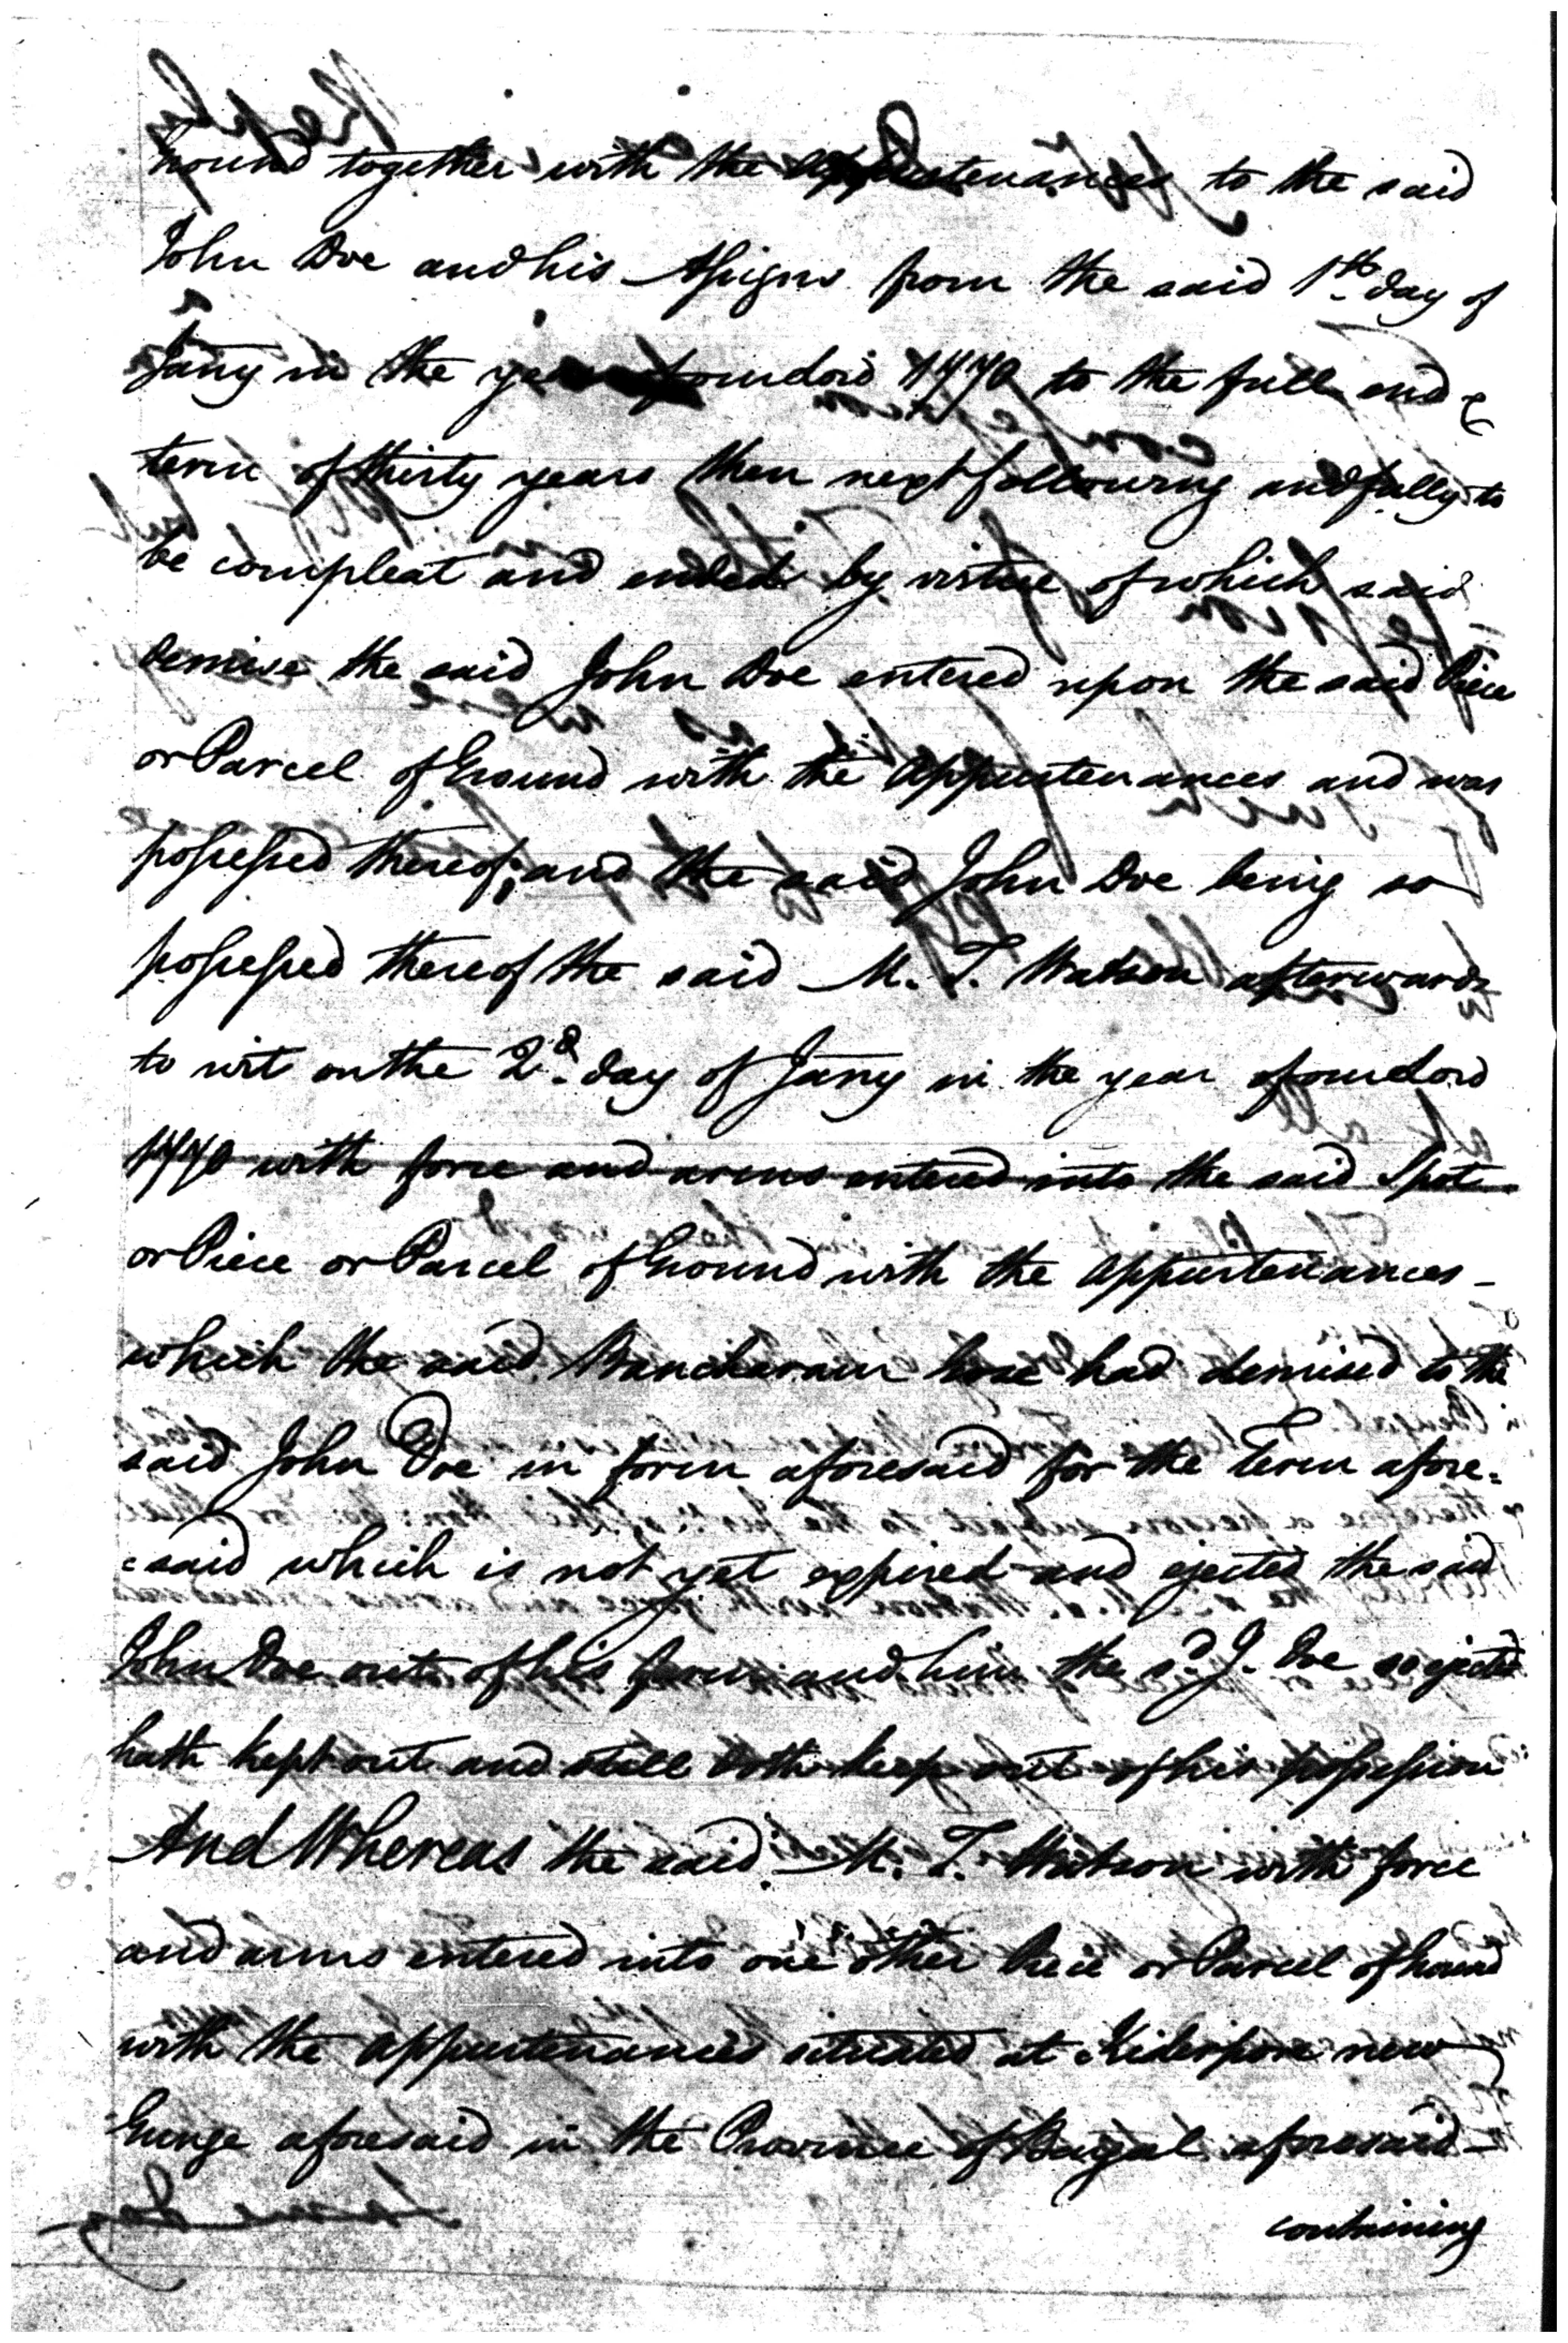 hound together with the appurtenances to the said
John Doe and his Assigns from the said 1st day of
Jany in the year of our Lord 1770 to the full end &
term of thirty years then next following and fully to
be compleat and ended by virtue of which said
demise the said John Doe entered upon the said Piece
or Parcel of Ground with the appurtenances and was
possessed thereof; and the said John Doe being so
possessed thereof the said M. T. Watson afterwards
to wit on the 2d. day of Jany in the year of our Lord
1770 with force and arms entered into the said Spot
or Piece or Parcel of Ground with the appurtenances -
which the said Bancharam bose had demised to the
said John Doe in form aforesaid for the Term afore=
=said which is not yet expired and ejected the said
John Doe out of his farm and him the sd. J. Doe so ejected
hath kept out and still doth keep out of his possession
And Whereas the said M. T. Watson with force
and arms entered into one other Piece or Parcel of Ground
with the appurtenances situated at Kiderpore new
Gunge aforesaid in the Province of Bengal aforesaid -
containing